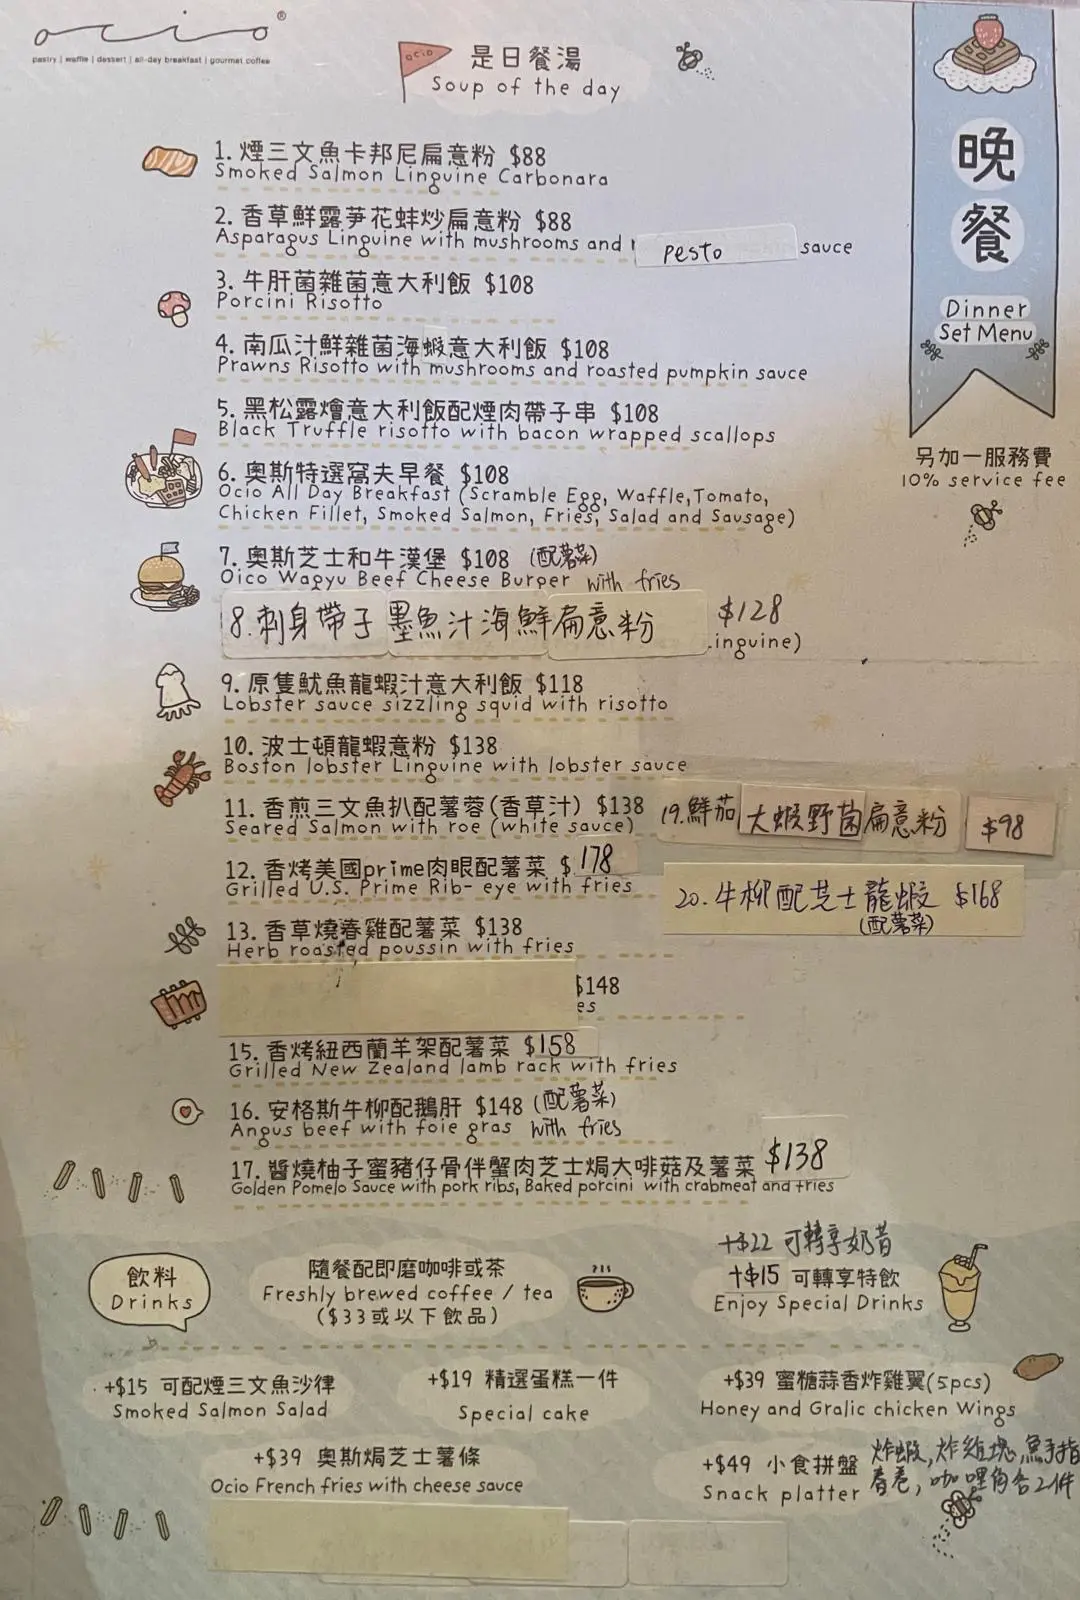 ocio®
pastry | waffle | dessert | all-day breakfast | gourmet coffee
ocio
是日餐湯
Soup of the day
晚餐
Dinner
Set Menu
另加一服務費
10% service fee
1. 煙三文魚卡邦尼扁意粉 $88
Smoked Salmon Linguine Carbonara
2. 香草鮮露笋花蚌炒扁意粉 $88
Asparagus Linguine with mushrooms and pesto sauce
3. 牛肝菌雜菌意大利飯 $108
Porcini Risotto
4. 南瓜汁鮮雜菌海蝦意大利飯 $108
Prawns Risotto with mushrooms and roasted pumpkin sauce
5. 黑松露燴意大利飯配煙肉帶子串 $108
Black Truffle risotto with bacon wrapped scallops
6. 奧斯特選窩夫早餐 $108
Ocio All Day Breakfast (Scramble Egg, Waffle,Tomato,
Chicken Fillet, Smoked Salmon, Fries, Salad and Sausage)
7. 奧斯芝士和牛漢堡 $108 (配薯菜)
Oico Wagyu Beef Cheese Burger with fries
8.刺身帶子墨魚汁海鮮扁意粉 $128
inguine)
9. 原隻魷魚龍蝦汁意大利飯 $118
Lobster sauce sizzling squid with risotto
10. 波士頓龍蝦意粉 $138
Boston lobster Linguine with lobster sauce
11. 香煎三文魚扒配薯蓉(香草汁) $138
Seared Salmon with roe (white sauce)
12. 香烤美國prime肉眼配薯菜 $178
Grilled U.S. Prime Rib- eye with fries
13. 香草燒春雞配薯菜 $138
Herb roasted poussin with fries
$148
es
15. 香烤紐西蘭羊架配薯菜 $158
Grilled New Zealand lamb rack with fries
16. 安格斯牛柳配鵝肝 $148 (配薯菜)
Angus beef with foie gras with fries
17. 醬燒柚子蜜豬仔骨伴蟹肉芝士焗大啡菇及薯菜 $138
Golden Pomelo Sauce with pork ribs, Baked porcini with crabmeat and fries
19.鮮茄大蝦野菌扁意粉 $98
20.牛柳配芝士龍蝦 $168
(配薯菜)
飲料
Drinks
隨餐配即磨咖啡或茶
Freshly brewed coffee / tea
($33或以下飲品)
+$22 可轉享奶昔
+$15 可轉享特飲
Enjoy Special Drinks
+$15 可配煙三文魚沙律
Smoked Salmon Salad
+$19 精選蛋糕一件
Special cake
+$39 蜜糖蒜香炸雞翼(5pcs)
Honey and Gralic chicken Wings
+$39 奧斯焗芝士薯條
Ocio French fries with cheese sauce
+$49 小食拼盤
Snack platter
炸蝦,炸雞塊,魚手指
春卷,咖喱角各2件